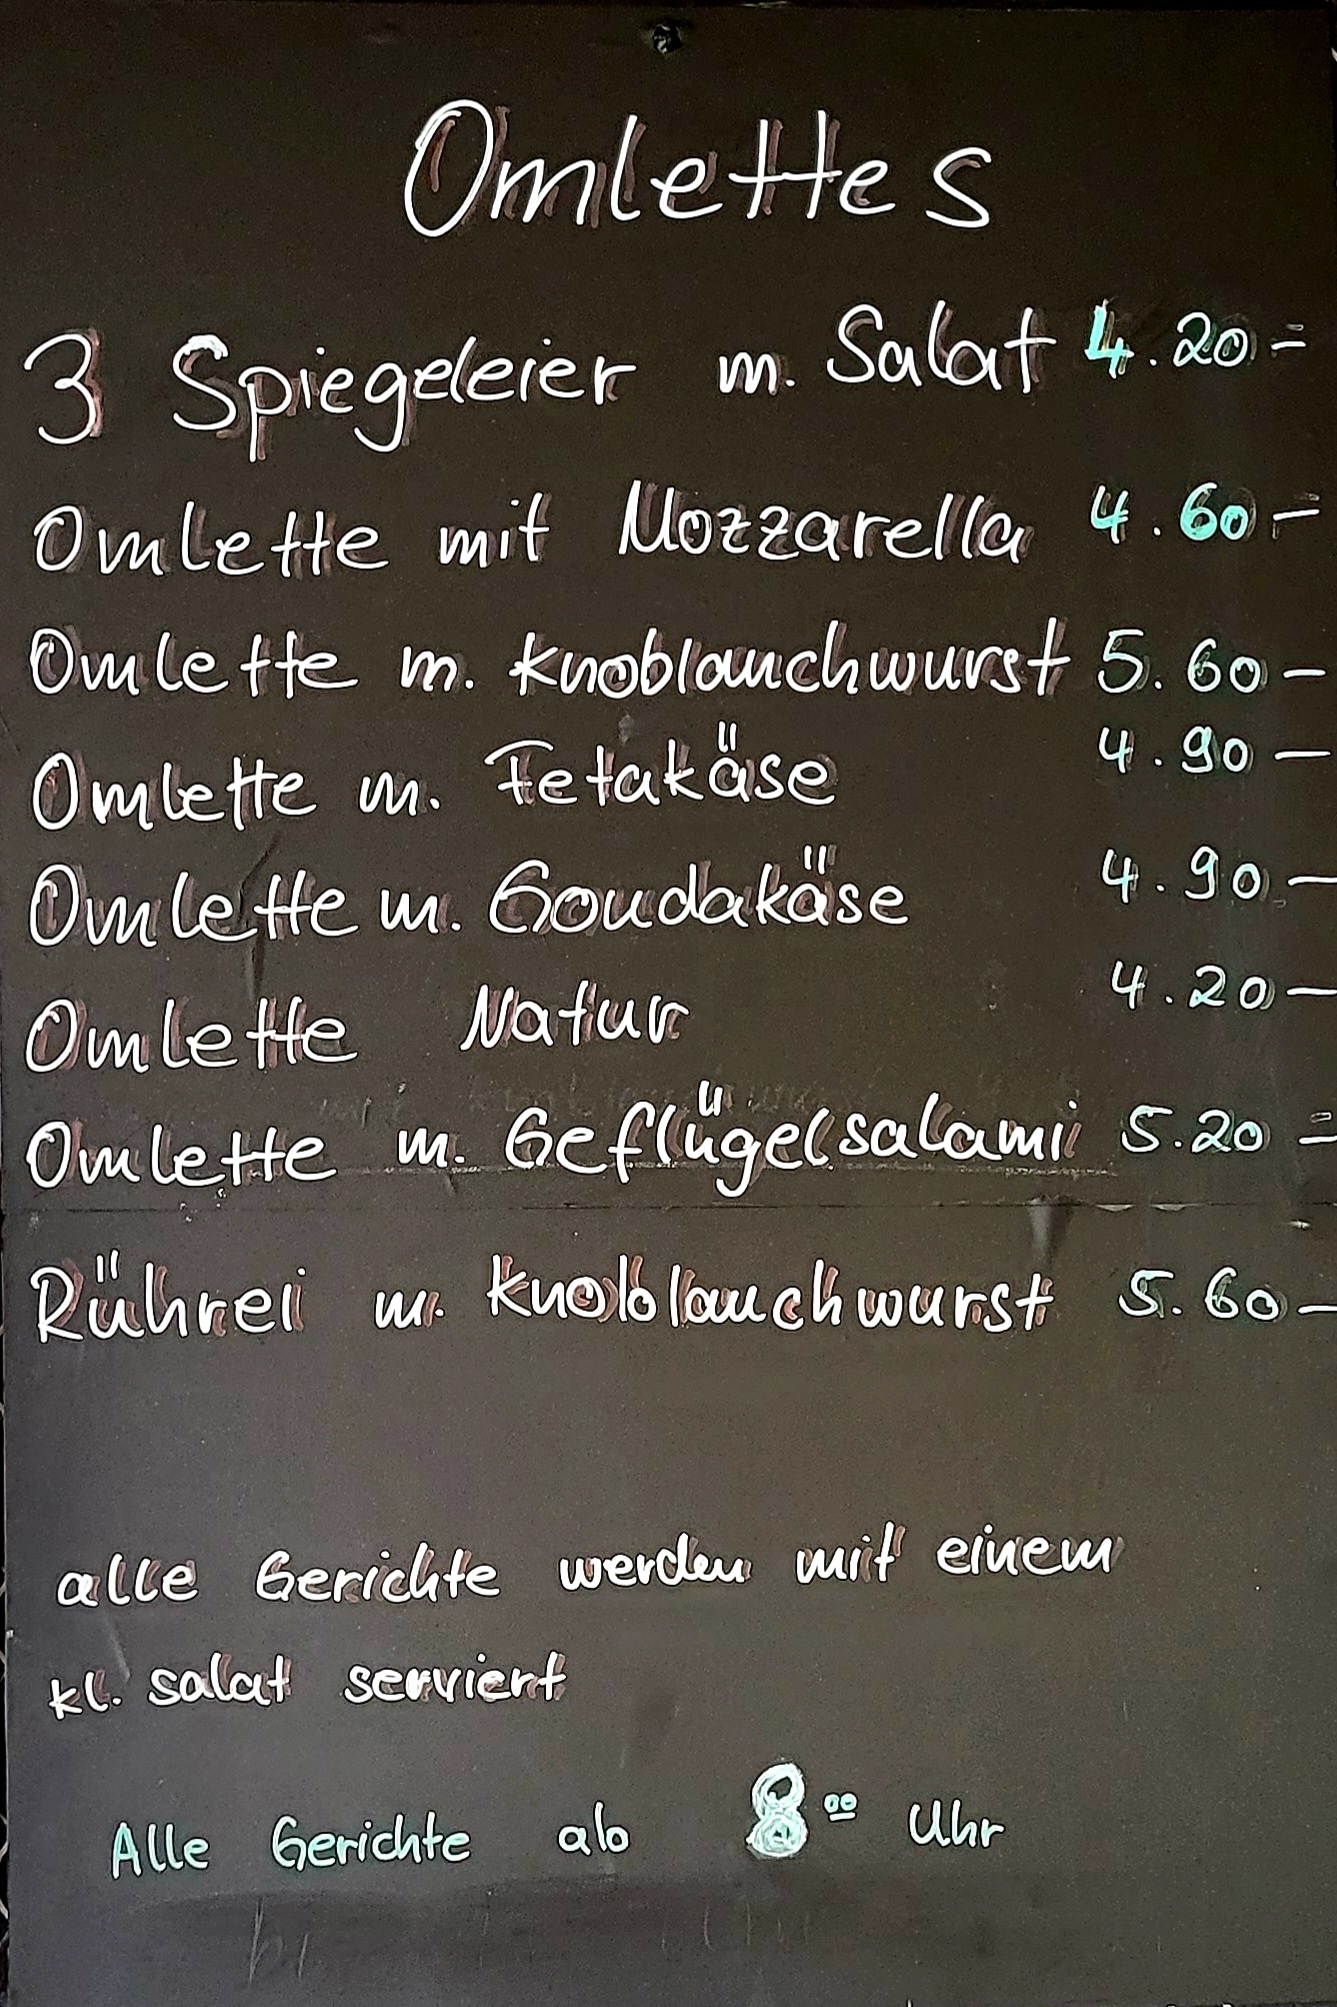 Omlettes
3 Spiegeleier m. Salat 4.20=
Omlette mit Mozzarella 4.60-
Omlette m. Knoblauchwurst 5.60-
Omlette m. Fetakäse 4.90-
Omlette m. Goudakäse 4.90-
Omlette Natur 4.20-
Omlette m. Geflügelsalami 5.20=
Rührei m. Knoblauchwurst 5.60-
alle Gerichte werden mit einem
kl. salat serviert
Alle Gerichte ab 8⁰⁰ Uhr